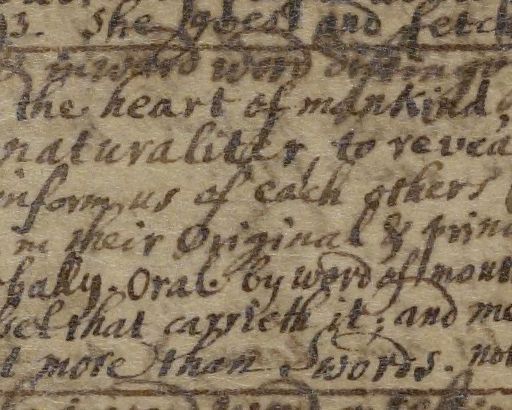 93. She goes and fetch
inward word
the heart of mankind,
naturaliter, to revea
inform us of each others
in their Original & prin
rbally. Oral by word of mout
bel that carrieth it; and me
t more than words. not